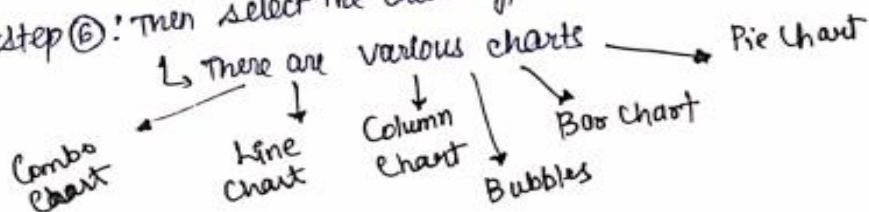 Step ⑥: Then select the
↳ There are various charts
Combo Chart
Line Chart
Column Chart
Bubbles
Bar Chart
Pie Chart